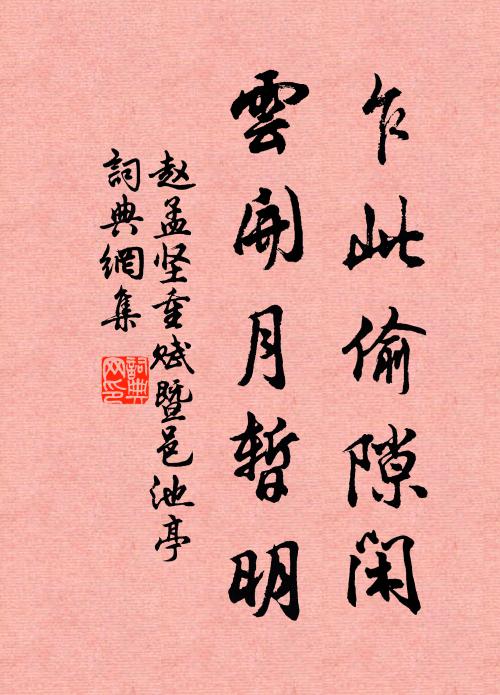 乍此偷隙閑
雲開月暫明
赵孟坚重赋暨邑池亭
詞典網集
詞典網印